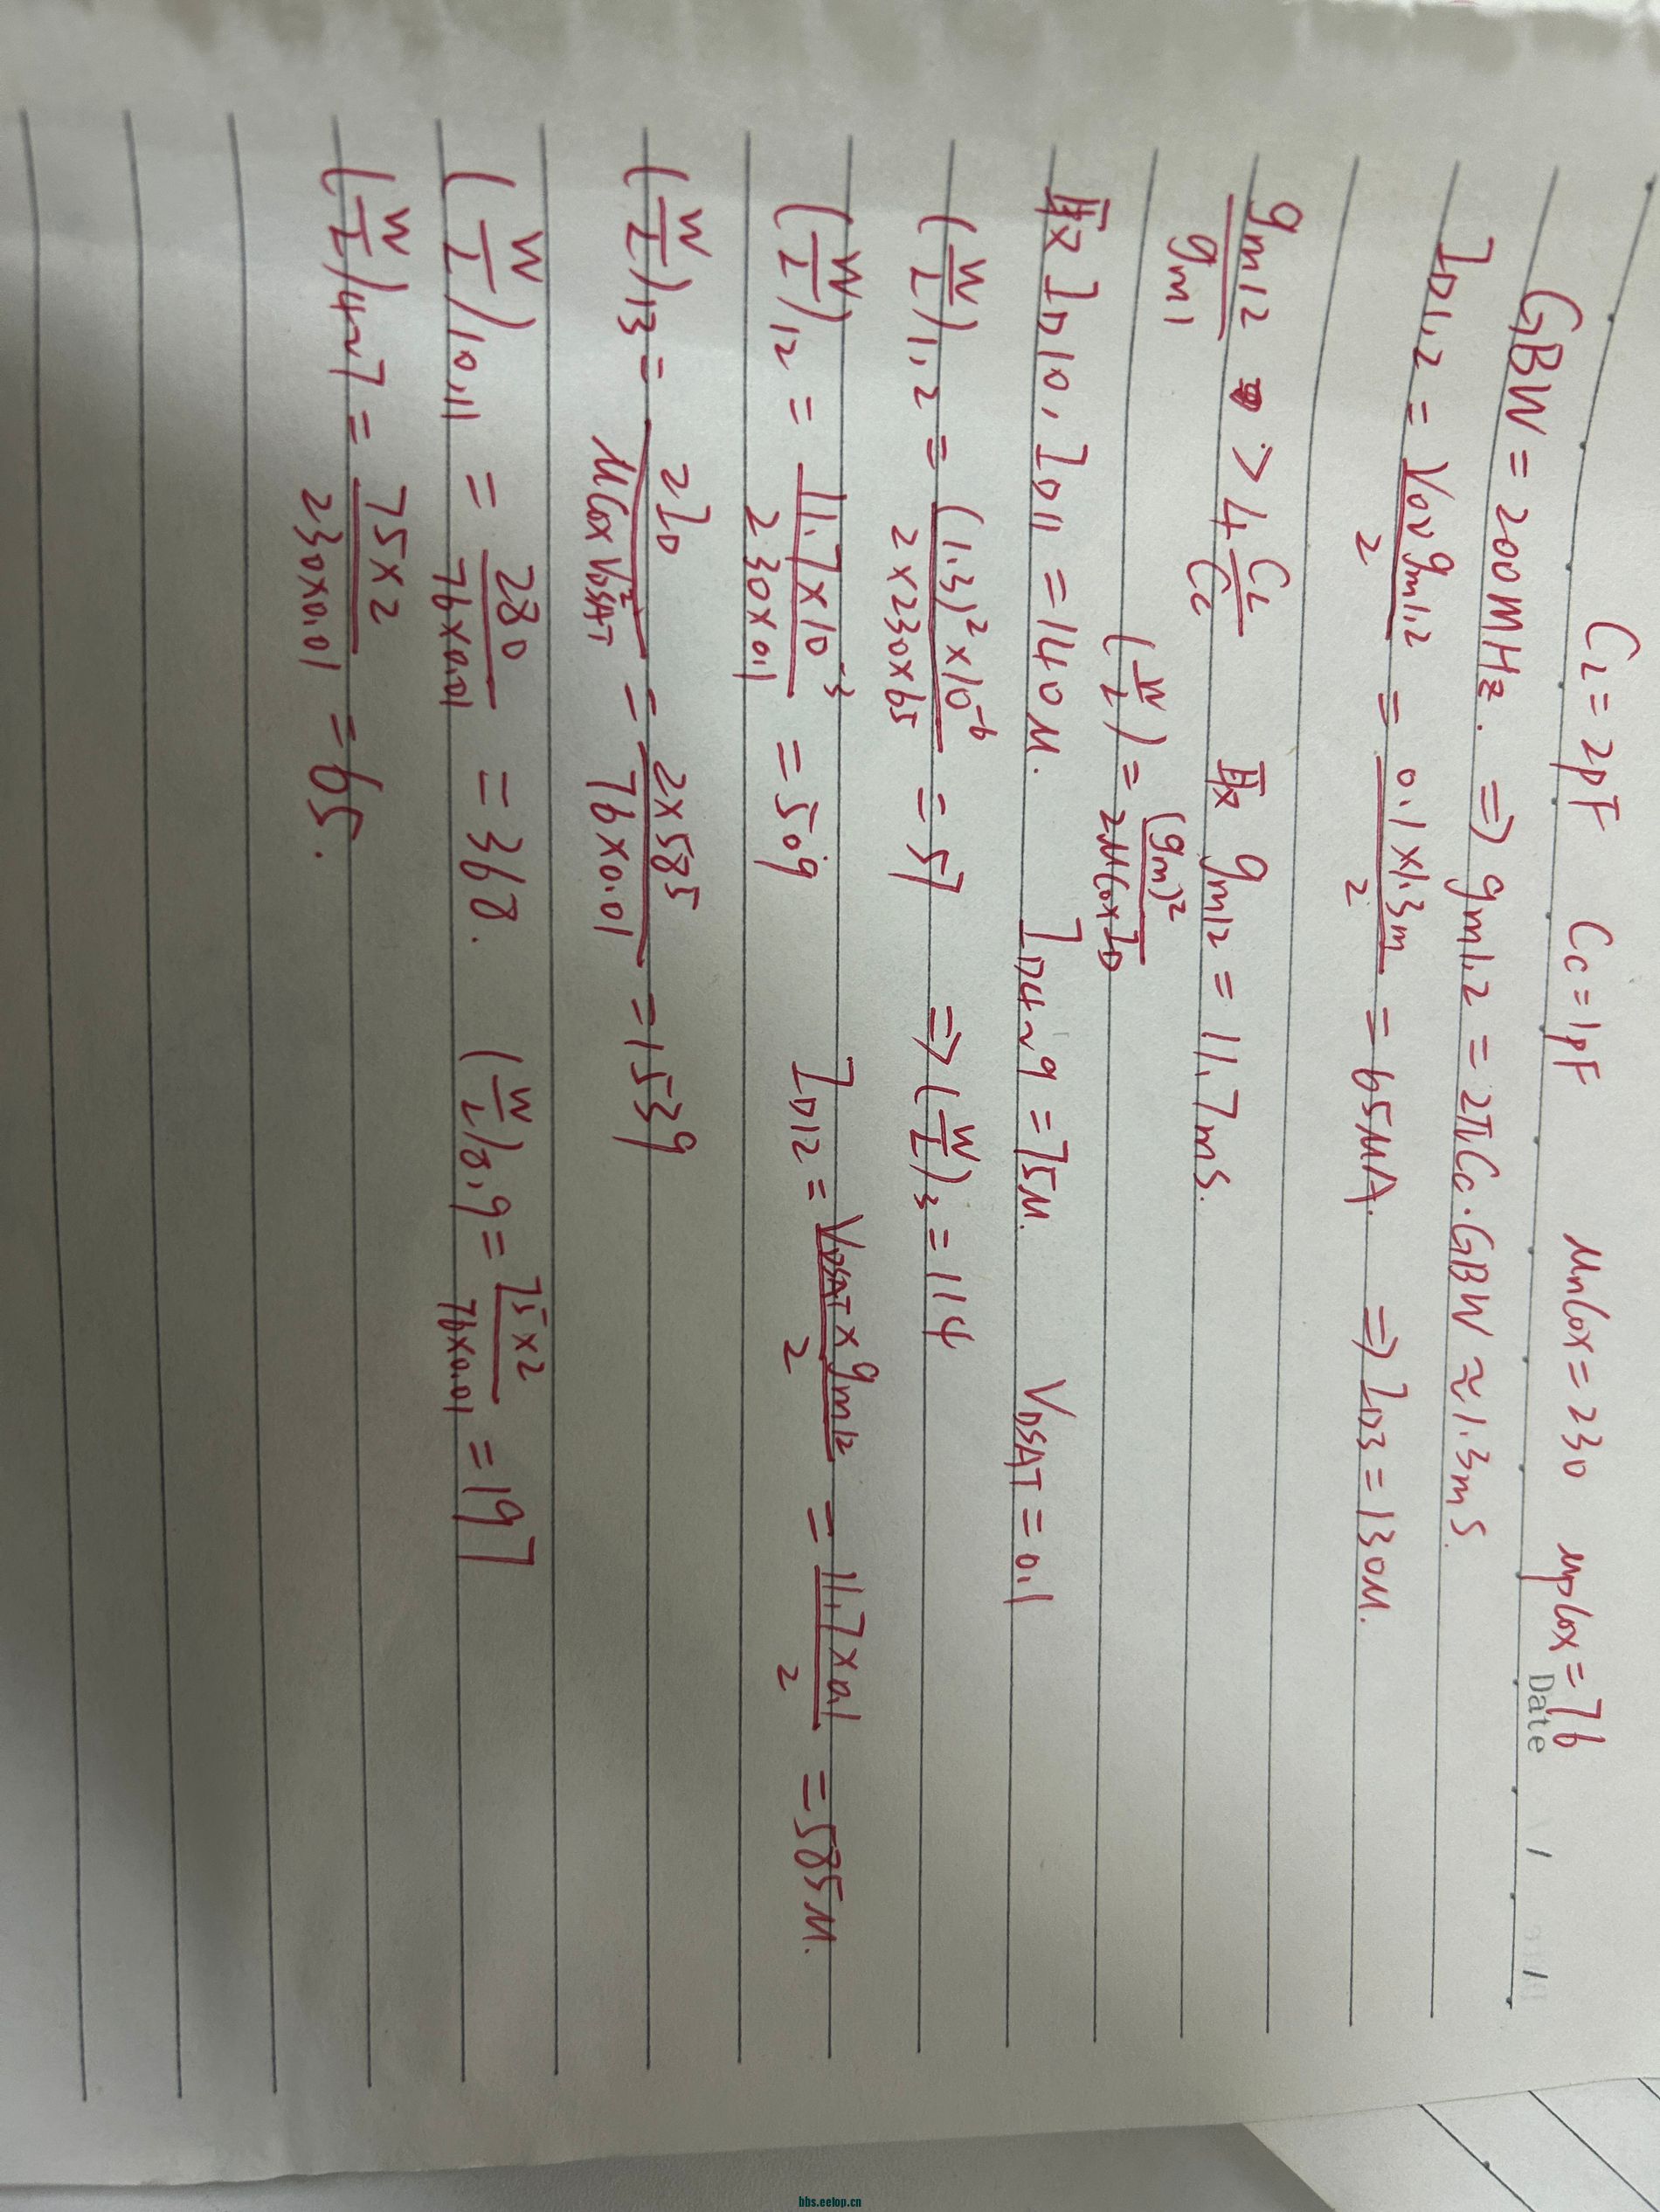 C_L = 2pF C_c = 1pF μnCox = 230 μpCox = 76
Date / /
GBW = 200MHz. ⇒ gm1,2 = 2πCc·GBW ≈ 1.3mS.
I_D1,2 = Vov gm1,2 / 2 = 0.1×1.3m / 2 = 65μA. ⇒ I_D3 = 130μ.
gm12 / gm1 > 4 C_L / C_c 取 gm12 = 11.7mS.
(W/L) = (gm)² / 2μCox I_D
取 I_D10, I_D11 = 140μ. I_D4~9 = 75μ. V_DSAT = 0.1
(W/L)1,2 = (1.3)²×10⁻⁶ / 2×230×65 = 57 ⇒ (W/L)3 = 114
(W/L)12 = 11.7×10⁻³ / 230×0.1 = 509 I_D12 = V_DSAT × gm12 / 2 = 11.7×0.1 / 2 = 585μ.
(W/L)13 = 2I_D / μCox V²_DSAT = 2×585 / 76×0.01 = 1539
(W/L)10,11 = 280 / 76×0.01 = 368. (W/L)8,9 = 75×2 / 76×0.01 = 197
(W/L)4~7 = 75×2 / 230×0.01 = 65.
bbs.eetop.cn